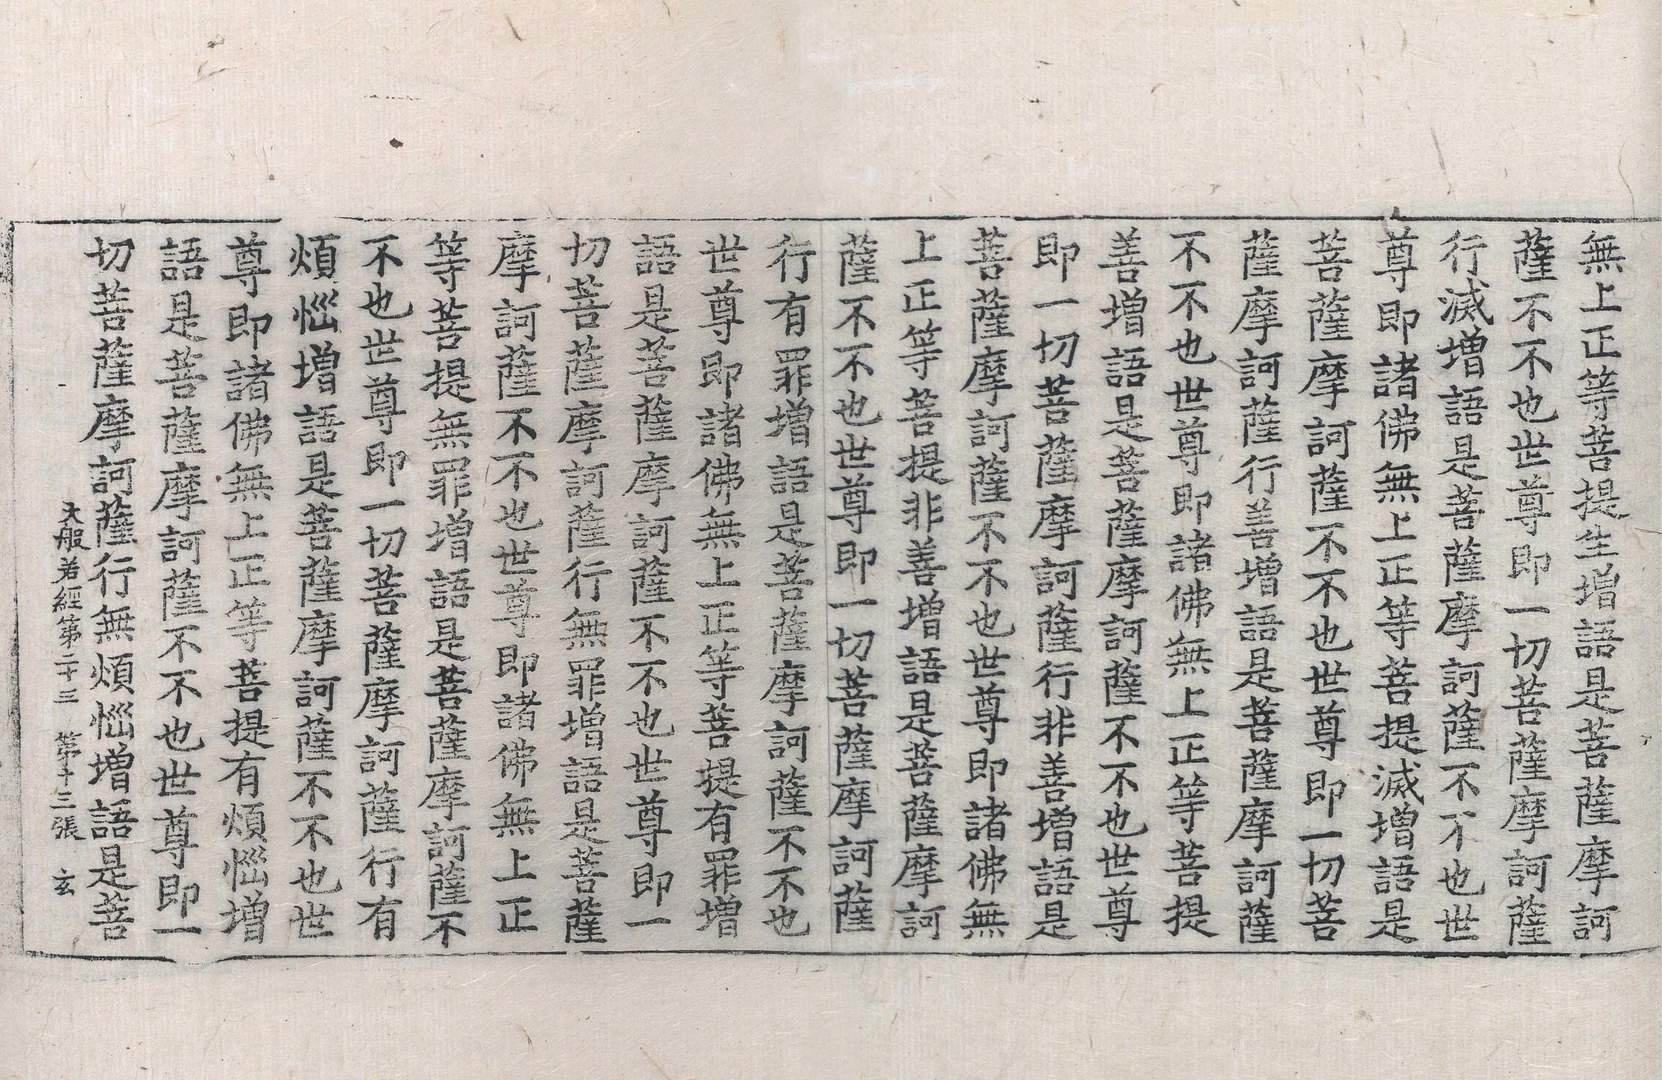 無上正等菩提生增語是菩薩摩訶
薩不不也世尊即一切菩薩摩訶薩
行滅增語是菩薩摩訶薩不不也世
尊即諸佛無上正等菩提滅增語是
菩薩摩訶薩不不也世尊即一切菩
薩摩訶薩行善增語是菩薩摩訶薩
不不也世尊即諸佛無上正等菩提
善增語是菩薩摩訶薩不不也世尊
即一切菩薩摩訶薩行非善增語是
菩薩摩訶薩不不也世尊即諸佛無
上正等菩提非善增語是菩薩摩訶
薩不不也世尊即一切菩薩摩訶薩
行有罪增語是菩薩摩訶薩不不也
世尊即諸佛無上正等菩提有罪增
語是菩薩摩訶薩不不也世尊即一
切菩薩摩訶薩行無罪增語是菩薩
摩訶薩不不也世尊即諸佛無上正
等菩提無罪增語是菩薩摩訶薩不
不也世尊即一切菩薩摩訶薩行有
煩惱增語是菩薩摩訶薩不不也世
尊即諸佛無上正等菩提有煩惱增
語是菩薩摩訶薩不不也世尊即一
切菩薩摩訶薩行無煩惱增語是菩
大般若經第二十三 第十三張 玄